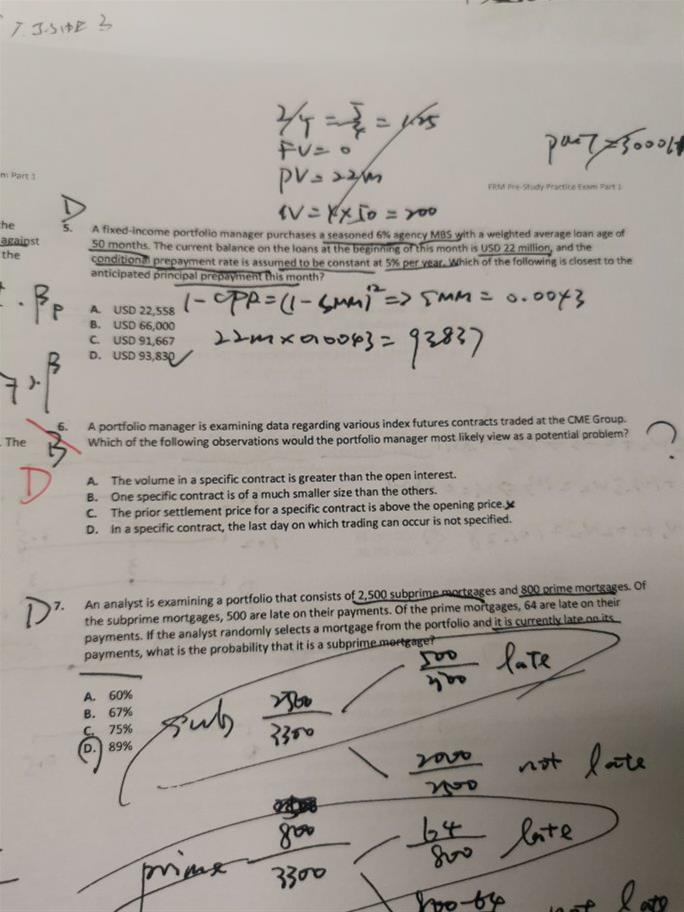 7. J-SITE 3
2/Y = 5/4 = 1.25
FV = 0
PV = 22m
IV = 4 x 50 = 200
m Part 1
FRM Pre-Study Practice Exam Part 1
he
against
the
D
5. A fixed-income portfolio manager purchases a seasoned 6% agency MBS with a weighted average loan age of
50 months. The current balance on the loans at the beginning of this month is USD 22 million, and the
conditional prepayment rate is assumed to be constant at 5% per year. Which of the following is closest to the
anticipated principal prepayment this month?
A. USD 22,558
B. USD 66,000
C. USD 91,667
D. USD 93,830
1 - CPR = (1 - SMM)^12 => SMM = 0.0043
22m x 0.0043 = 93837
. βp
β
The
B
D
6. A portfolio manager is examining data regarding various index futures contracts traded at the CME Group.
Which of the following observations would the portfolio manager most likely view as a potential problem?
?
A. The volume in a specific contract is greater than the open interest.
B. One specific contract is of a much smaller size than the others.
C. The prior settlement price for a specific contract is above the opening price.
D. In a specific contract, the last day on which trading can occur is not specified.
D
7. An analyst is examining a portfolio that consists of 2,500 subprime mortgages and 800 prime mortgages. Of
the subprime mortgages, 500 are late on their payments. Of the prime mortgages, 64 are late on their
payments. If the analyst randomly selects a mortgage from the portfolio and it is currently late on its
payments, what is the probability that it is a subprime mortgage?
A. 60%
B. 67%
C. 75%
D. 89%
sub 2500/3300
500/2500 late
2000/2500 not late
prime 800/3300
64/800 late
800-64 not late